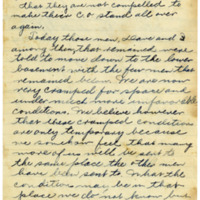 that they are not compelled to
make their C.O stand all over
again.
Today those men, Dave and I
among them, that remained were
told to move down to the lower
basement with the few men that
remained. We are now
very cramped for space and
under much more unfavorable
conditions. We believe however
that these cramped conditions
are only temporary because
we somehow feel that many
more of us will be sent to
the same place the other men
have been sent to. What the
conditions may be in that
place we do not know but